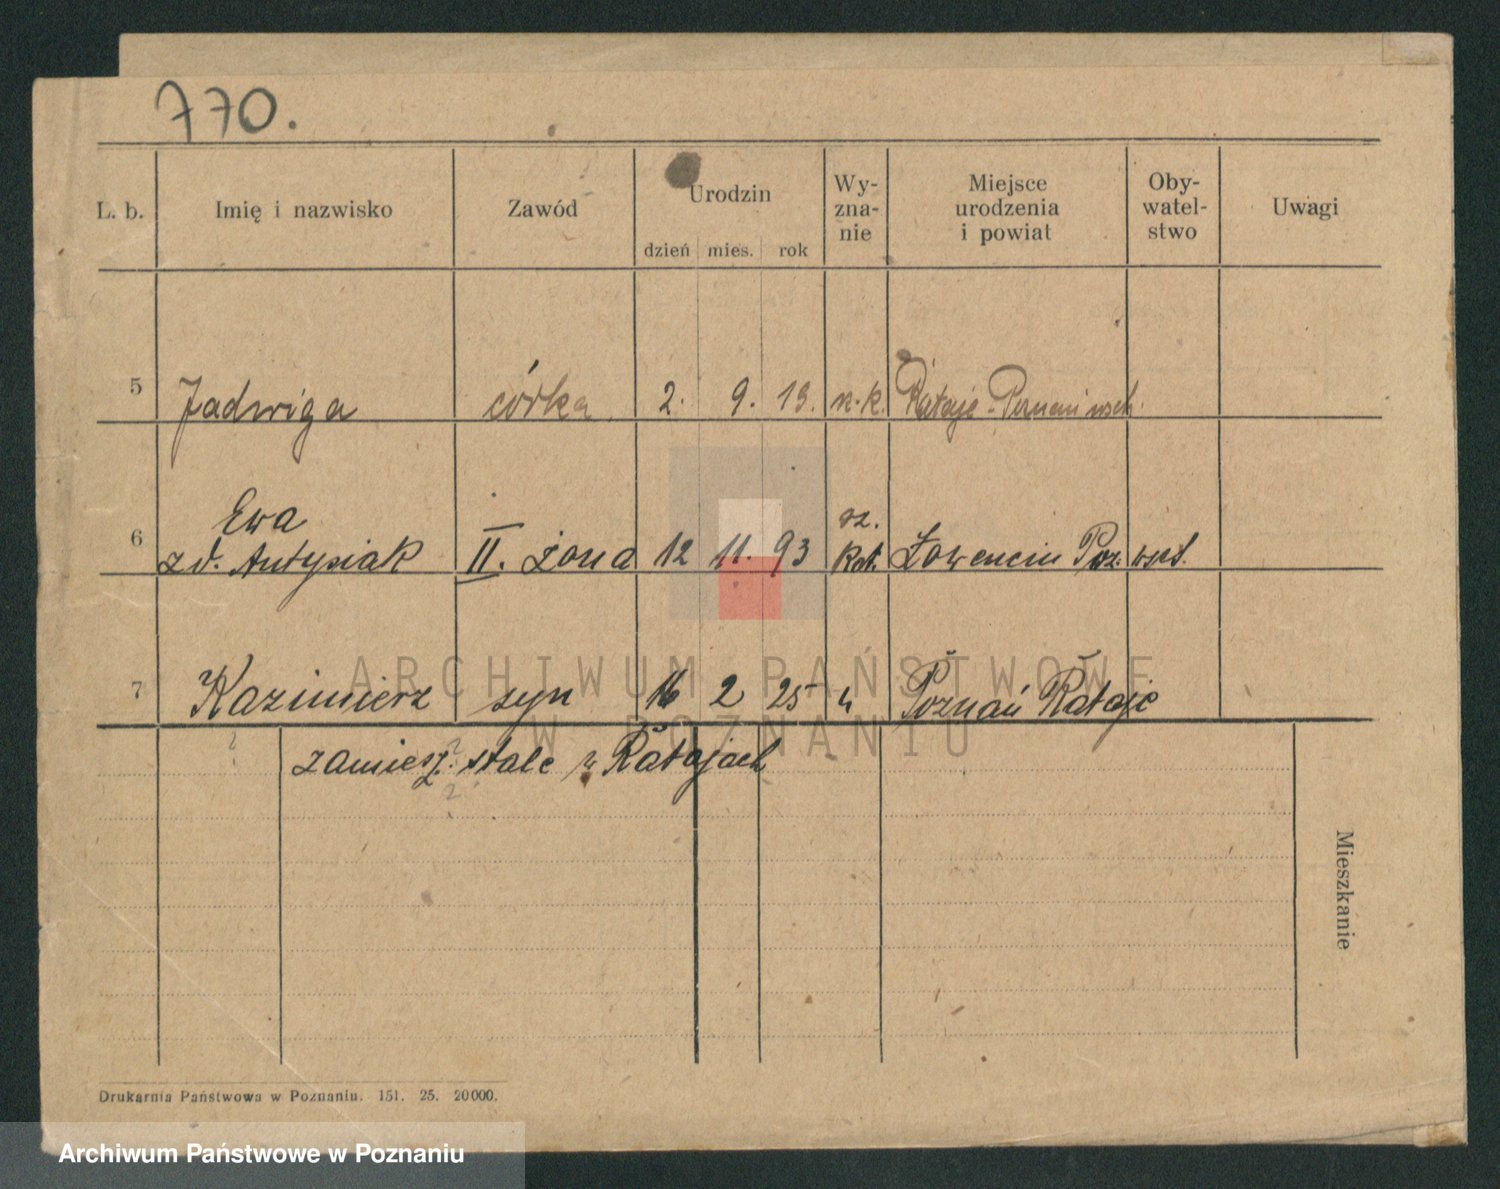 770.
L. b. Imię i nazwisko Zawód Urodzin Wy-zna-nie Miejsce urodzenia i powiat Oby-watel-stwo Uwagi
dzień mies. rok
5 Jadwiga córka 2. 9. 19. r.k. Rataje-Poznań wsch.
Ewa rz.
6 zd. Antysiak II. żona 12 11. 93 kat. Łowencin Poz. wsch.
7 Kazimierz syn 16 2 25 " Poznań Rataje
zamiesz. stale w Ratajach
Mieszkanie
Drukarnia Państwowa w Poznaniu. 151. 25. 20000.
ARCHIWUM PAŃSTWOWE
W POZNANIU
Archiwum Państwowe w Poznaniu